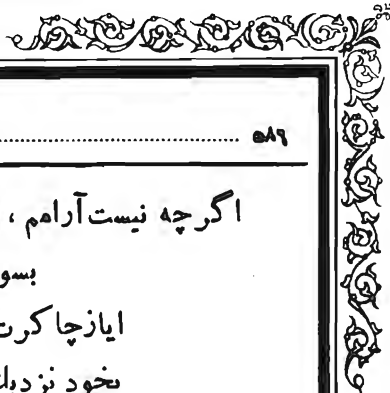 ۵۸۹
اگر چه نیست آرامم ،
بسو
ایاز چاکرت
بخود نزدیك